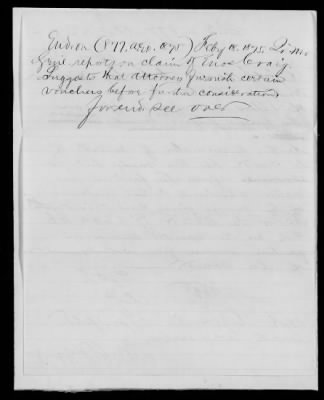 Endson (877. a.g.o. 1875) Feby 18. 1875. Lt. Mc
reports on claim of Enos Craig.
Suggests that attorney furnish certain
vouchers before further consideration.
for end. see over